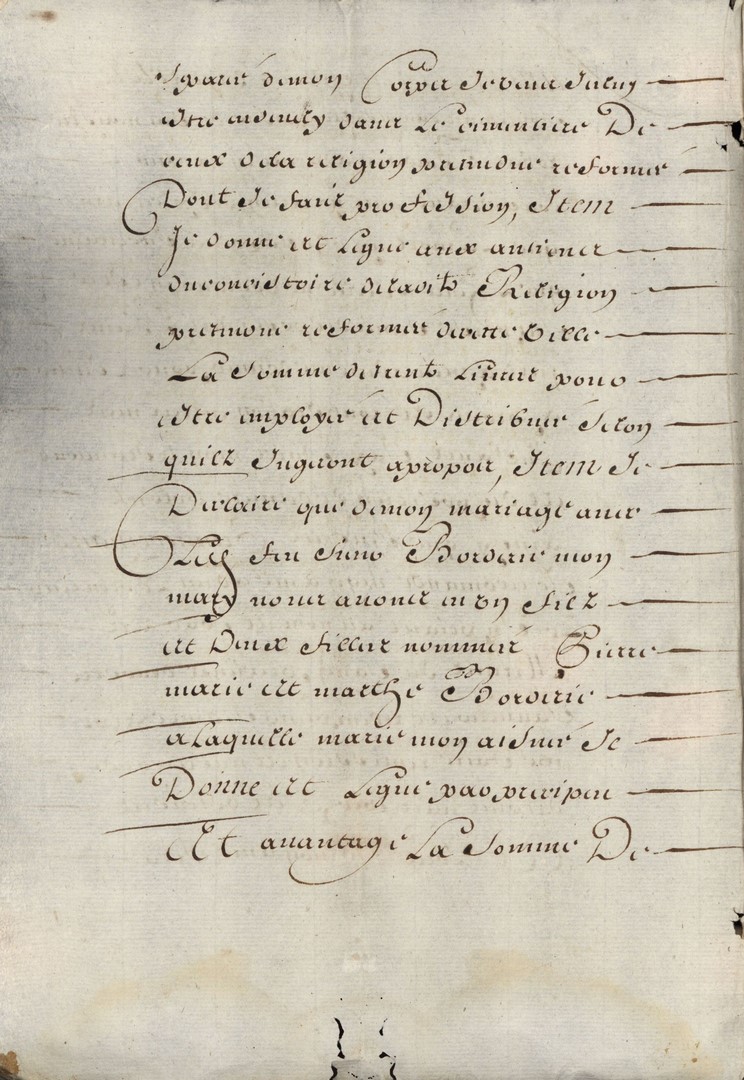 separée demon Corps Je veux Iceluy
estre ensevely dans Le cimentiere De
ceux dela religion pretendue reformée
Dont Je fais profession, Item
Je donne et Legue aux antiens
du concistoire deladite Religion
pretendue reformée decette Ville
La somme decent Livres pour
estre employée et Distribuée selon
quilz Jugeront apropos, Item Je
Declaire que demon mariage avec
Led feu sieur Borderie mon
mary nous avons eu un filz
et Deux filles nommés Pierre
marie et marthe Borderie
a Laquelle marie mon aisnée Je
Donne et Legue par precipeu
Et avantage La somme De